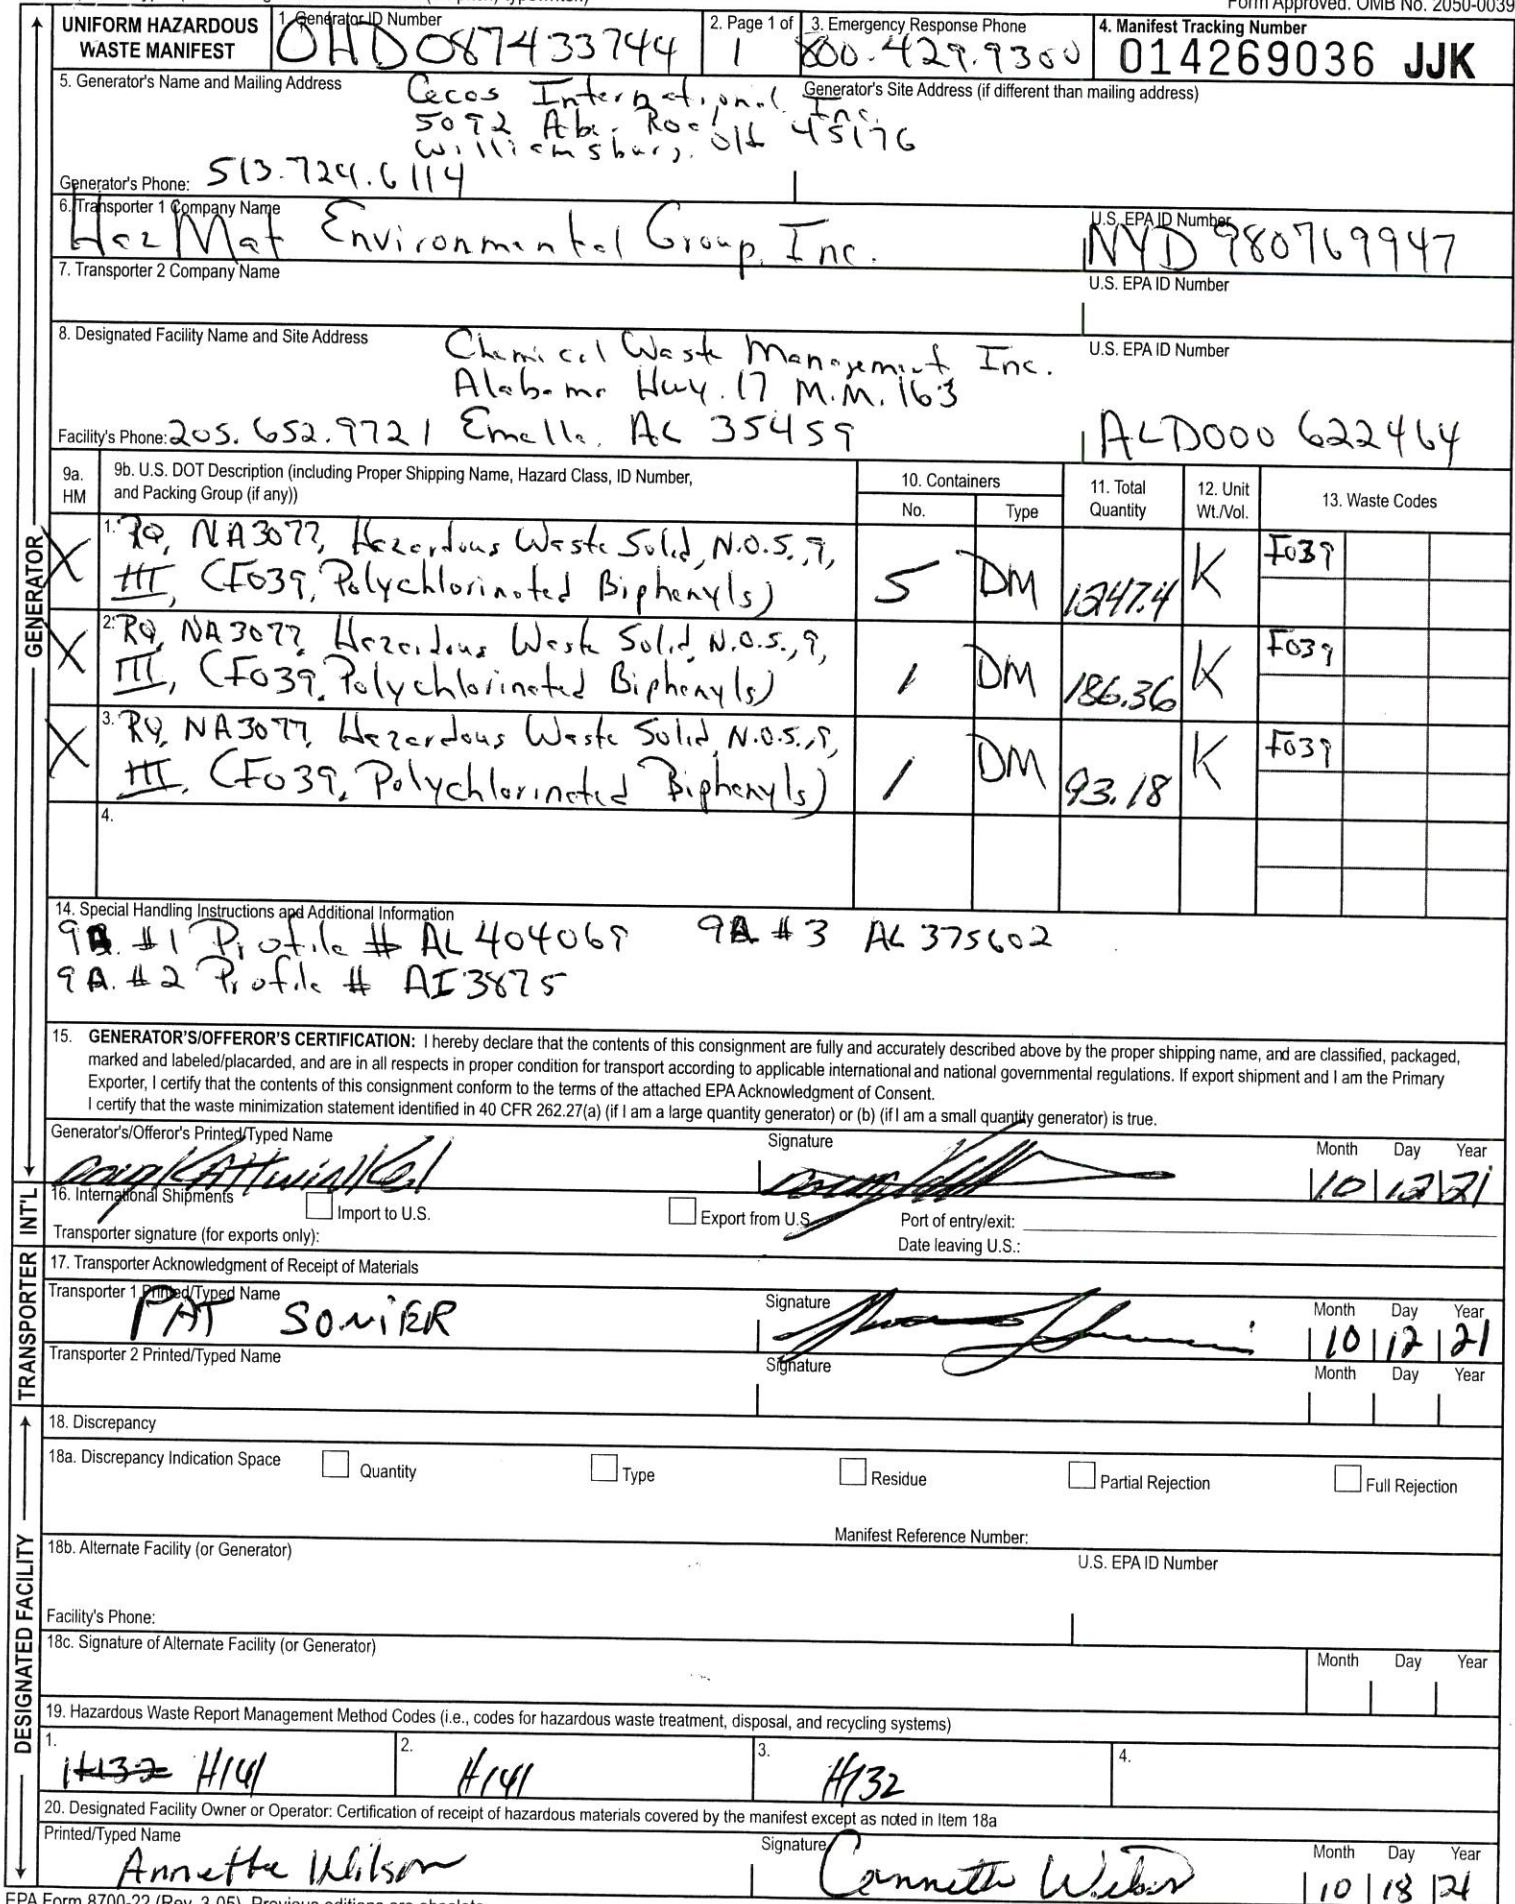 Form Approved. OMB No. 2050-0039
UNIFORM HAZARDOUS WASTE MANIFEST
1. Generator ID Number
OHD087433744
2. Page 1 of
1
3. Emergency Response Phone
800.429.9300
4. Manifest Tracking Number
014269036 JJK
5. Generator's Name and Mailing Address
Cecos International Inc.
5092 Aber Road
Williamsburg, OH 45176
Generator's Site Address (if different than mailing address)
Generator's Phone: 513.724.6114
6. Transporter 1 Company Name
HazMat Environmental Group, Inc.
U.S. EPA ID Number
NYD 980769947
7. Transporter 2 Company Name
U.S. EPA ID Number
8. Designated Facility Name and Site Address
Chemical Waste Management Inc.
Alabama Hwy. 17 M.M. 163
Emelle, AL 35459
Facility's Phone: 205.652.9721
U.S. EPA ID Number
ALD000 622464
9a. HM
9b. U.S. DOT Description (including Proper Shipping Name, Hazard Class, ID Number,
and Packing Group (if any))
10. Containers
No.
Type
11. Total Quantity
12. Unit Wt./Vol.
13. Waste Codes
GENERATOR
X
1. RQ, NA3077, Hazardous Waste Solid, N.O.S., 9,
III, (F039, Polychlorinated Biphenyls)
5 DM 1247.4 K F039
X
2. RQ, NA3077, Hazardous Waste Solid, N.O.S., 9,
III, (F039, Polychlorinated Biphenyls)
1 DM 186.36 K F039
X
3. RQ, NA3077, Hazardous Waste Solid, N.O.S., 9,
III, (F039, Polychlorinated Biphenyls)
1 DM 93.18 K F039
4.
14. Special Handling Instructions and Additional Information
9A. #1 Profile # AL404069 9A #3 AL375602
9A. #2 Profile # AI3875
15. GENERATOR'S/OFFEROR'S CERTIFICATION: I hereby declare that the contents of this consignment are fully and accurately described above by the proper shipping name, and are classified, packaged,
marked and labeled/placarded, and are in all respects in proper condition for transport according to applicable international and national governmental regulations. If export shipment and I am the Primary
Exporter, I certify that the contents of this consignment conform to the terms of the attached EPA Acknowledgment of Consent.
I certify that the waste minimization statement identified in 40 CFR 262.27(a) (if I am a large quantity generator) or (b) (if I am a small quantity generator) is true.
Generator's/Offeror's Printed/Typed Name
Signature
Month Day Year
10 12 21
INT'L
16. International Shipments
Import to U.S.
Export from U.S.
Port of entry/exit:
Transporter signature (for exports only):
Date leaving U.S.:
TRANSPORTER
17. Transporter Acknowledgment of Receipt of Materials
Transporter 1 Printed/Typed Name
PAT SONIER
Signature
Month Day Year
10 12 21
Transporter 2 Printed/Typed Name
Signature
Month Day Year
DESIGNATED FACILITY
18. Discrepancy
18a. Discrepancy Indication Space
Quantity
Type
Residue
Partial Rejection
Full Rejection
Manifest Reference Number:
18b. Alternate Facility (or Generator)
U.S. EPA ID Number
Facility's Phone:
18c. Signature of Alternate Facility (or Generator)
Month Day Year
19. Hazardous Waste Report Management Method Codes (i.e., codes for hazardous waste treatment, disposal, and recycling systems)
1. H132 H141
2. H141
3. H132
4.
20. Designated Facility Owner or Operator: Certification of receipt of hazardous materials covered by the manifest except as noted in Item 18a
Printed/Typed Name
Annette Wilson
Signature
Month Day Year
10 18 21
EPA Form 8700-22 (Rev. 3-05)